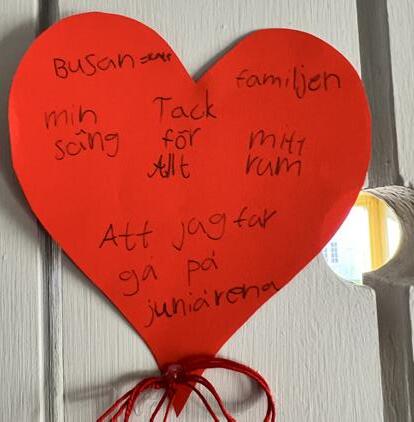 Busan
familjen
min
sång
Tack
för
Allt
mitt
rum
Att jag får
gå på
juniárena